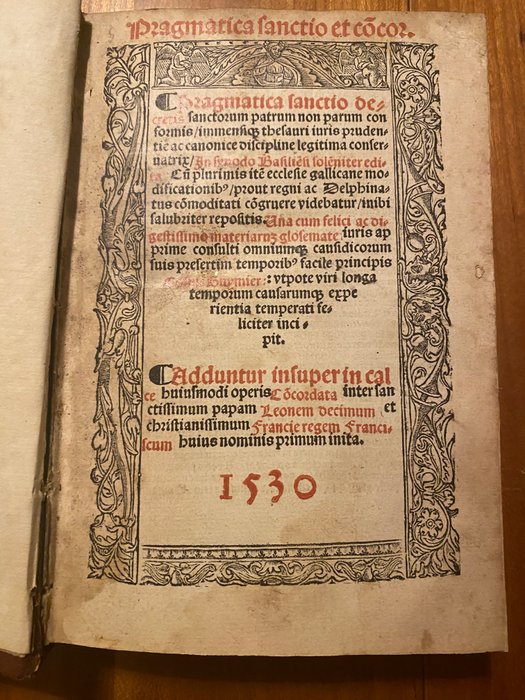 Pragmatica sanctio et cõcor.
Pragmatica sanctio de-
cretis sanctorum patrum non parum con
formis/immensiqꝫ thesauri iuris pruden
tiē ac canonice discipline legitima conser
uatrix/In synodo Basiliēn̄ solēniter edi
ta. Cū plurimis itē ecclesie gallicane mo
dificationibꝰ/prout regni ac Delphina
tus cōmoditati cōgruere videbatur/inibi
salubriter repositis. Una cum felici ac di
gestissimo materiarum glosemate iuris ap
prime consulti omniumqꝫ causidicorum
sui presertim temporibꝰ facile principis
Guymier: vtpote viri longa
temporum causarumqꝫ expe
rientia temperati fe-
liciter inci-
pit.
Adduntur insuper in cal
ce huiusmodi operis Cōcordata inter san
ctissimum papam Leonem decimum et
christianissimum Francie regem Franci-
scum huius nominis primum inita.
1530